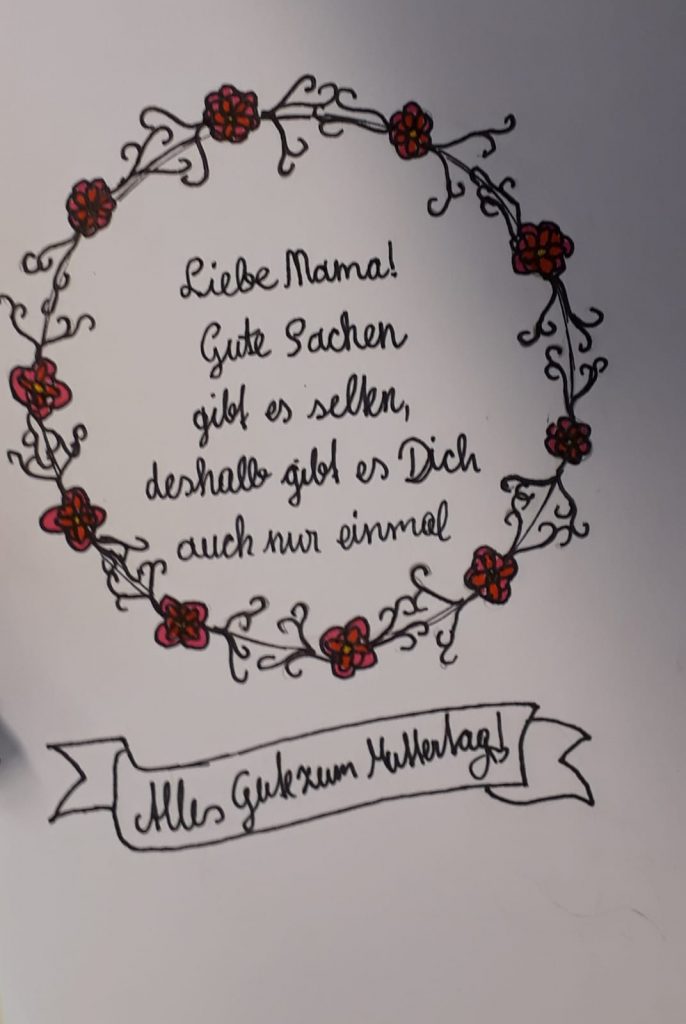 Liebe Mama!
Gute Sachen
gibt es selten,
deshalb gibt es Dich
auch nur einmal
Alles Gute zum Muttertag!